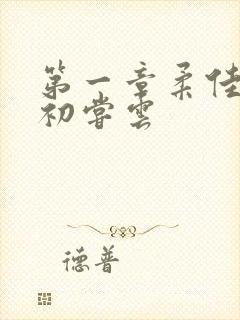 第一章柔佳
初尝云
德普